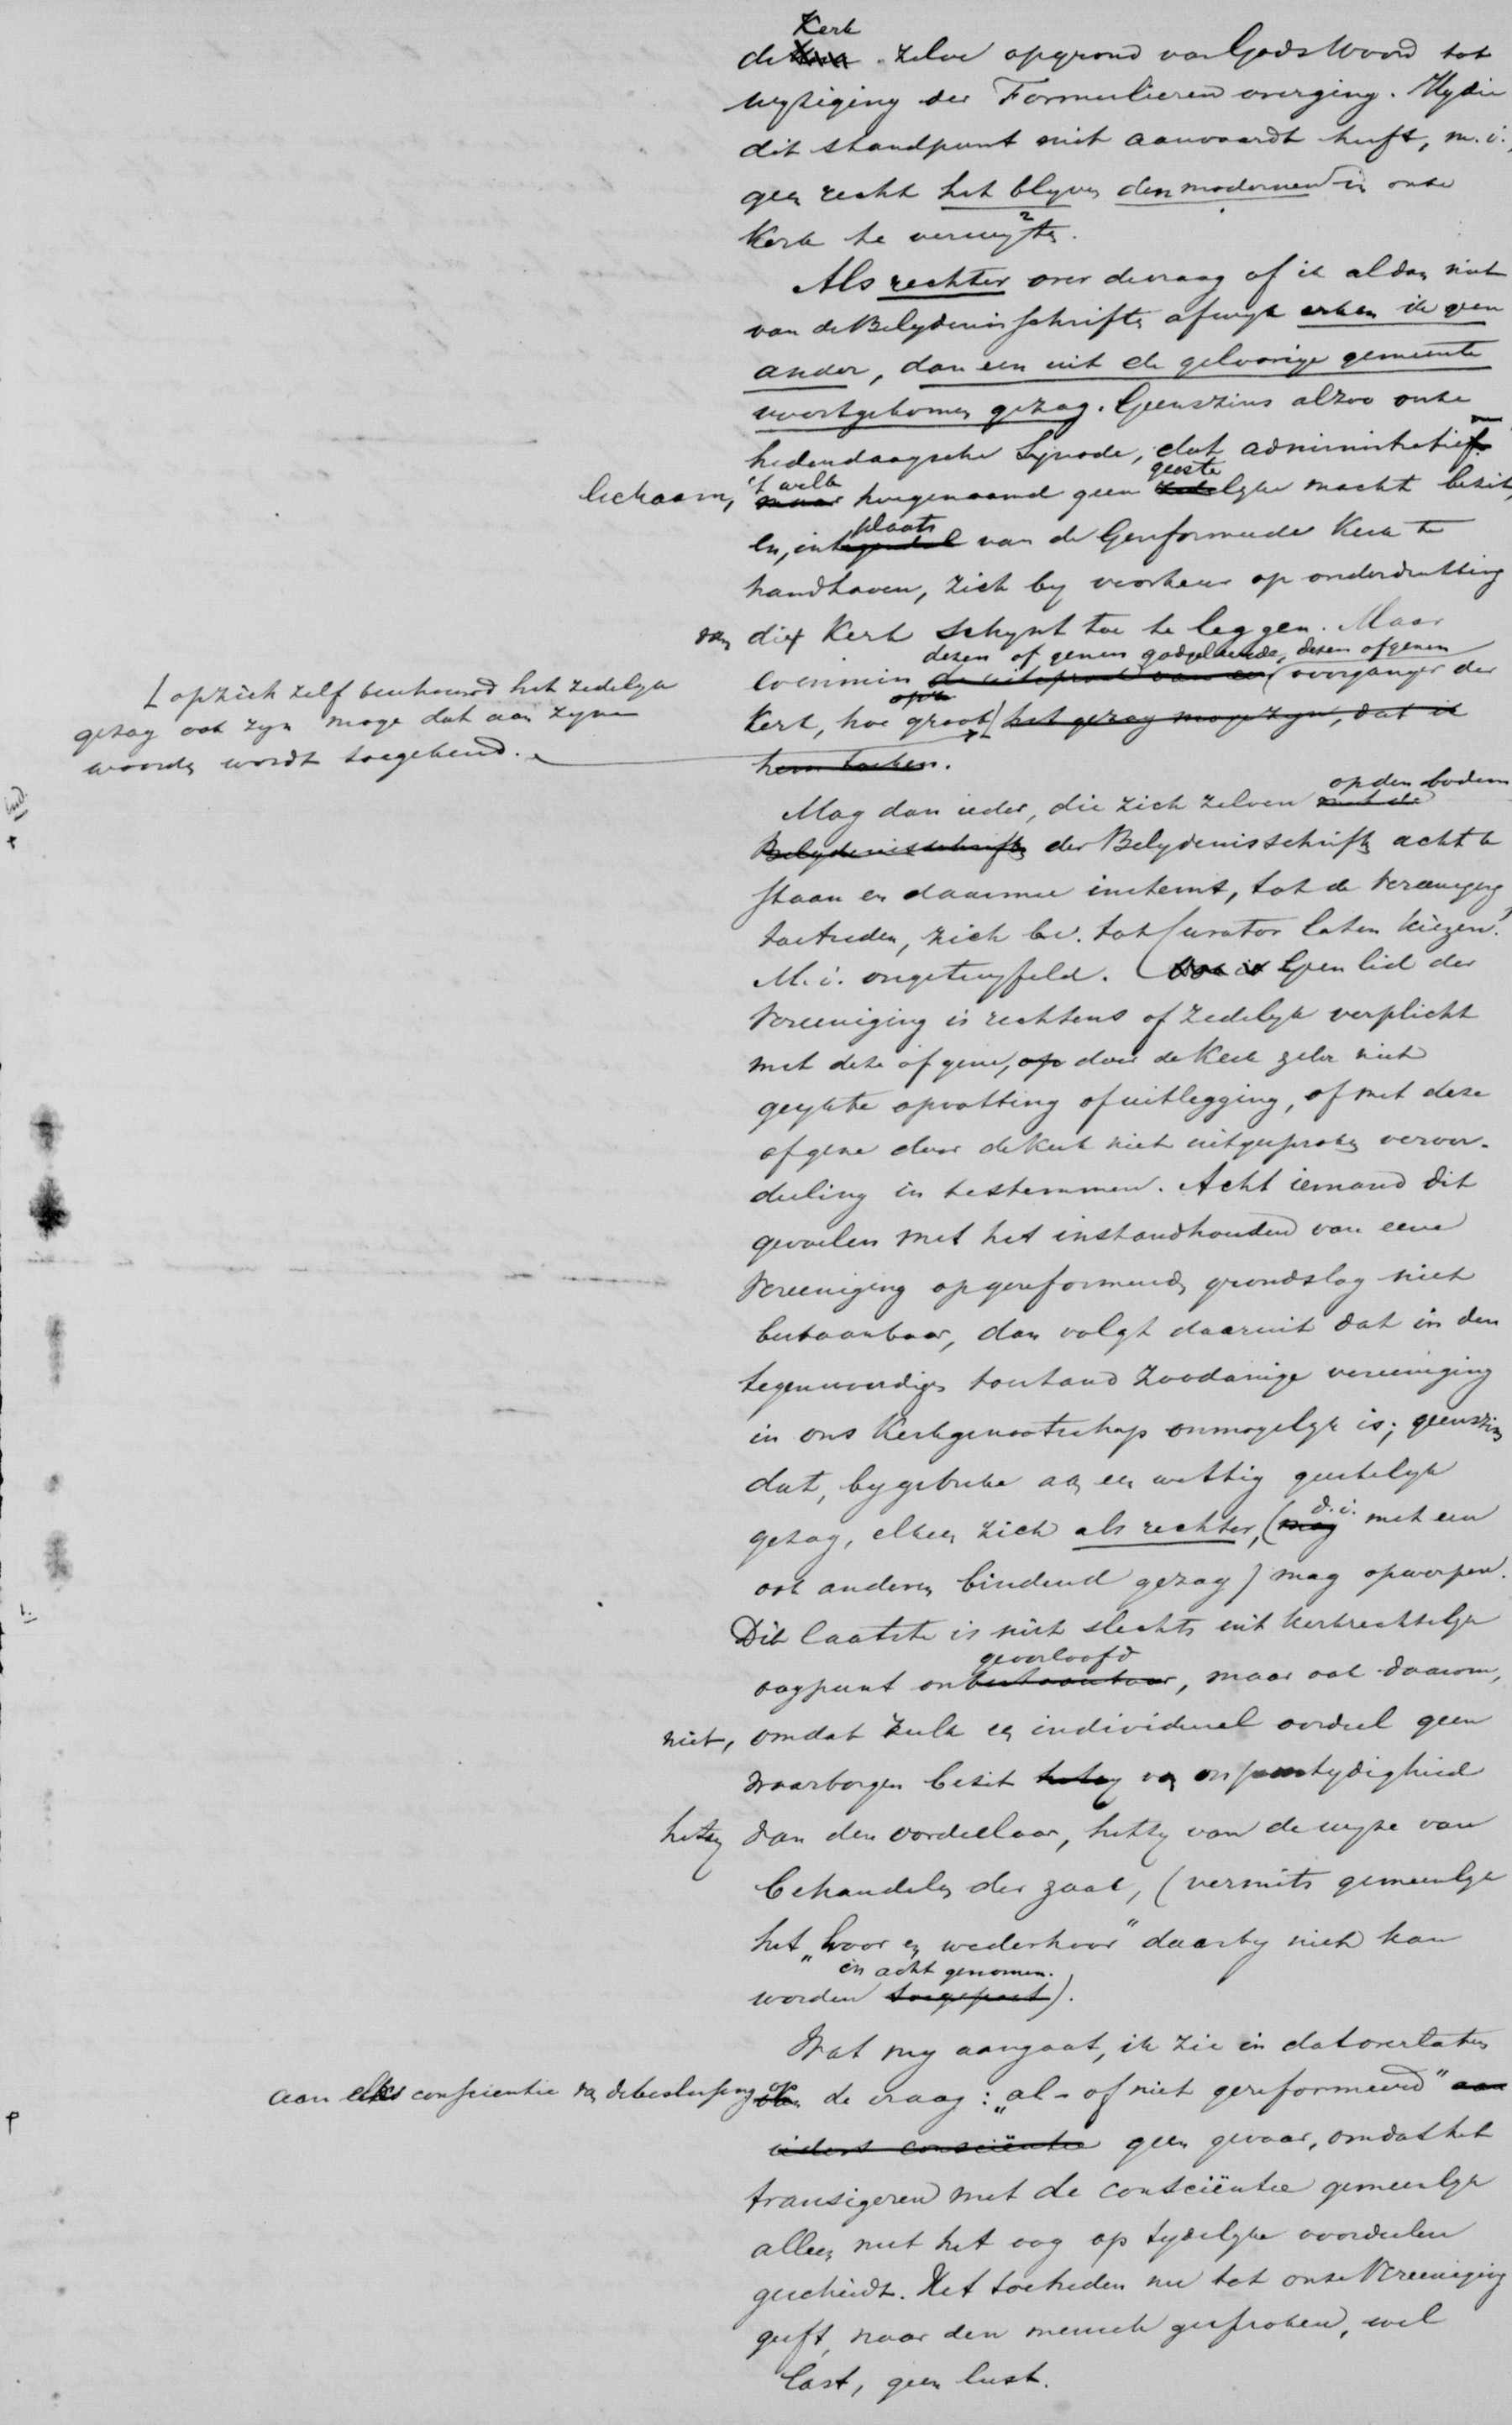 Kerk
de zelve op grond van Gods Woord tot
wijziging der Formulieren overging. Wie
dit standpunt niet aanvaardt heeft, m.i.,
geen recht het blijven den modernen in onze
Kerk te verwijten.
Als rechter over de vraag of ik al dan niet
van de Belijdenisschriften afwijk erken ik geen
ander, dan een uit de geloovige gemeente
voortgekomen gezag. Geenszins alzoo onze
hedendaagsche Synode, dat administratief
lichaam, 't welk hoegenaamd geen geestelijke macht bezit,
en, in plaats van de Gereformeerde Kerk te
handhaven, zich bij voorkeur op onderdrukking
van die Kerk schijnt toe te leggen. Maar
dezen of genen godgeleerde, dezen of genen
evenmin de uitspraak van een voorganger der
Kerk, hoe groot het gezag moge zijn, dat ik
[op zich zelf beschouwd het zedelijk
gezag ook zijn moge dat aan zijne
woorden wordt toegekend.
hem toeken.
Mag dan ieder, die zich zelven op den bodem
Belijdenisschriften der Belijdenisschriften acht te
staan en daarmee instemt, tot de Vereeniging
toetreden, zich b.v. tot Curator laten kiezen?
M.i. ongetwijfeld. Geen lid der
Vereeniging is rechtens of zedelijk verplicht
met deze of gene, op door de Kerk zelve niet
geijkte opvatting of uitlegging, of met deze
of gene door de Kerk niet uitgesproken veroor-
deeling in te stemmen. Acht iemand dit
gevoelen met het instandhouden van eene
Vereeniging op gereformeerde grondslag niet
bestaanbaar, dan volgt daaruit dat in den
tegenwoordigen toestand zoodanige vereeniging
in ons Kerkgenootschap onmogelijk is; geenszins
dat, bij gebreke aan een wettig geestelijk
gezag, elkeen zich als rechter, (d.i. met een
ook anderen bindend gezag) mag opwerpen.
Dit laatste is niet slechts uit kerkrechtelijk
geoorloofd
oogpunt onbestaanbaar, maar ook daarom,
niet, omdat zulk een individueel oordeel geen
waarborgen bezit hetzij van onpartijdigheid
hetzij van den oordeelaar, hetzij van de wijze van
behandelen der zaak, (vermits gemeenlijk
het "hoor en wederhoor" daarbij niet kan
in acht genomen.
worden toegepast).
Wat mij aangaat, ik zie in dat overlaten
aan elks conscientie van de beslissing op de vraag: "al- of niet gereformeerd" aan
ieders consciëntie geen gevaar, omdat het
transigeren met de consciëntie gemeenlijk
alleen met het oog op tijdelijke voordeelen
geschiedt. Het toetreden nu tot onze Vereeniging
geeft, naar den mensch gesproken, wel
last, geen lust.